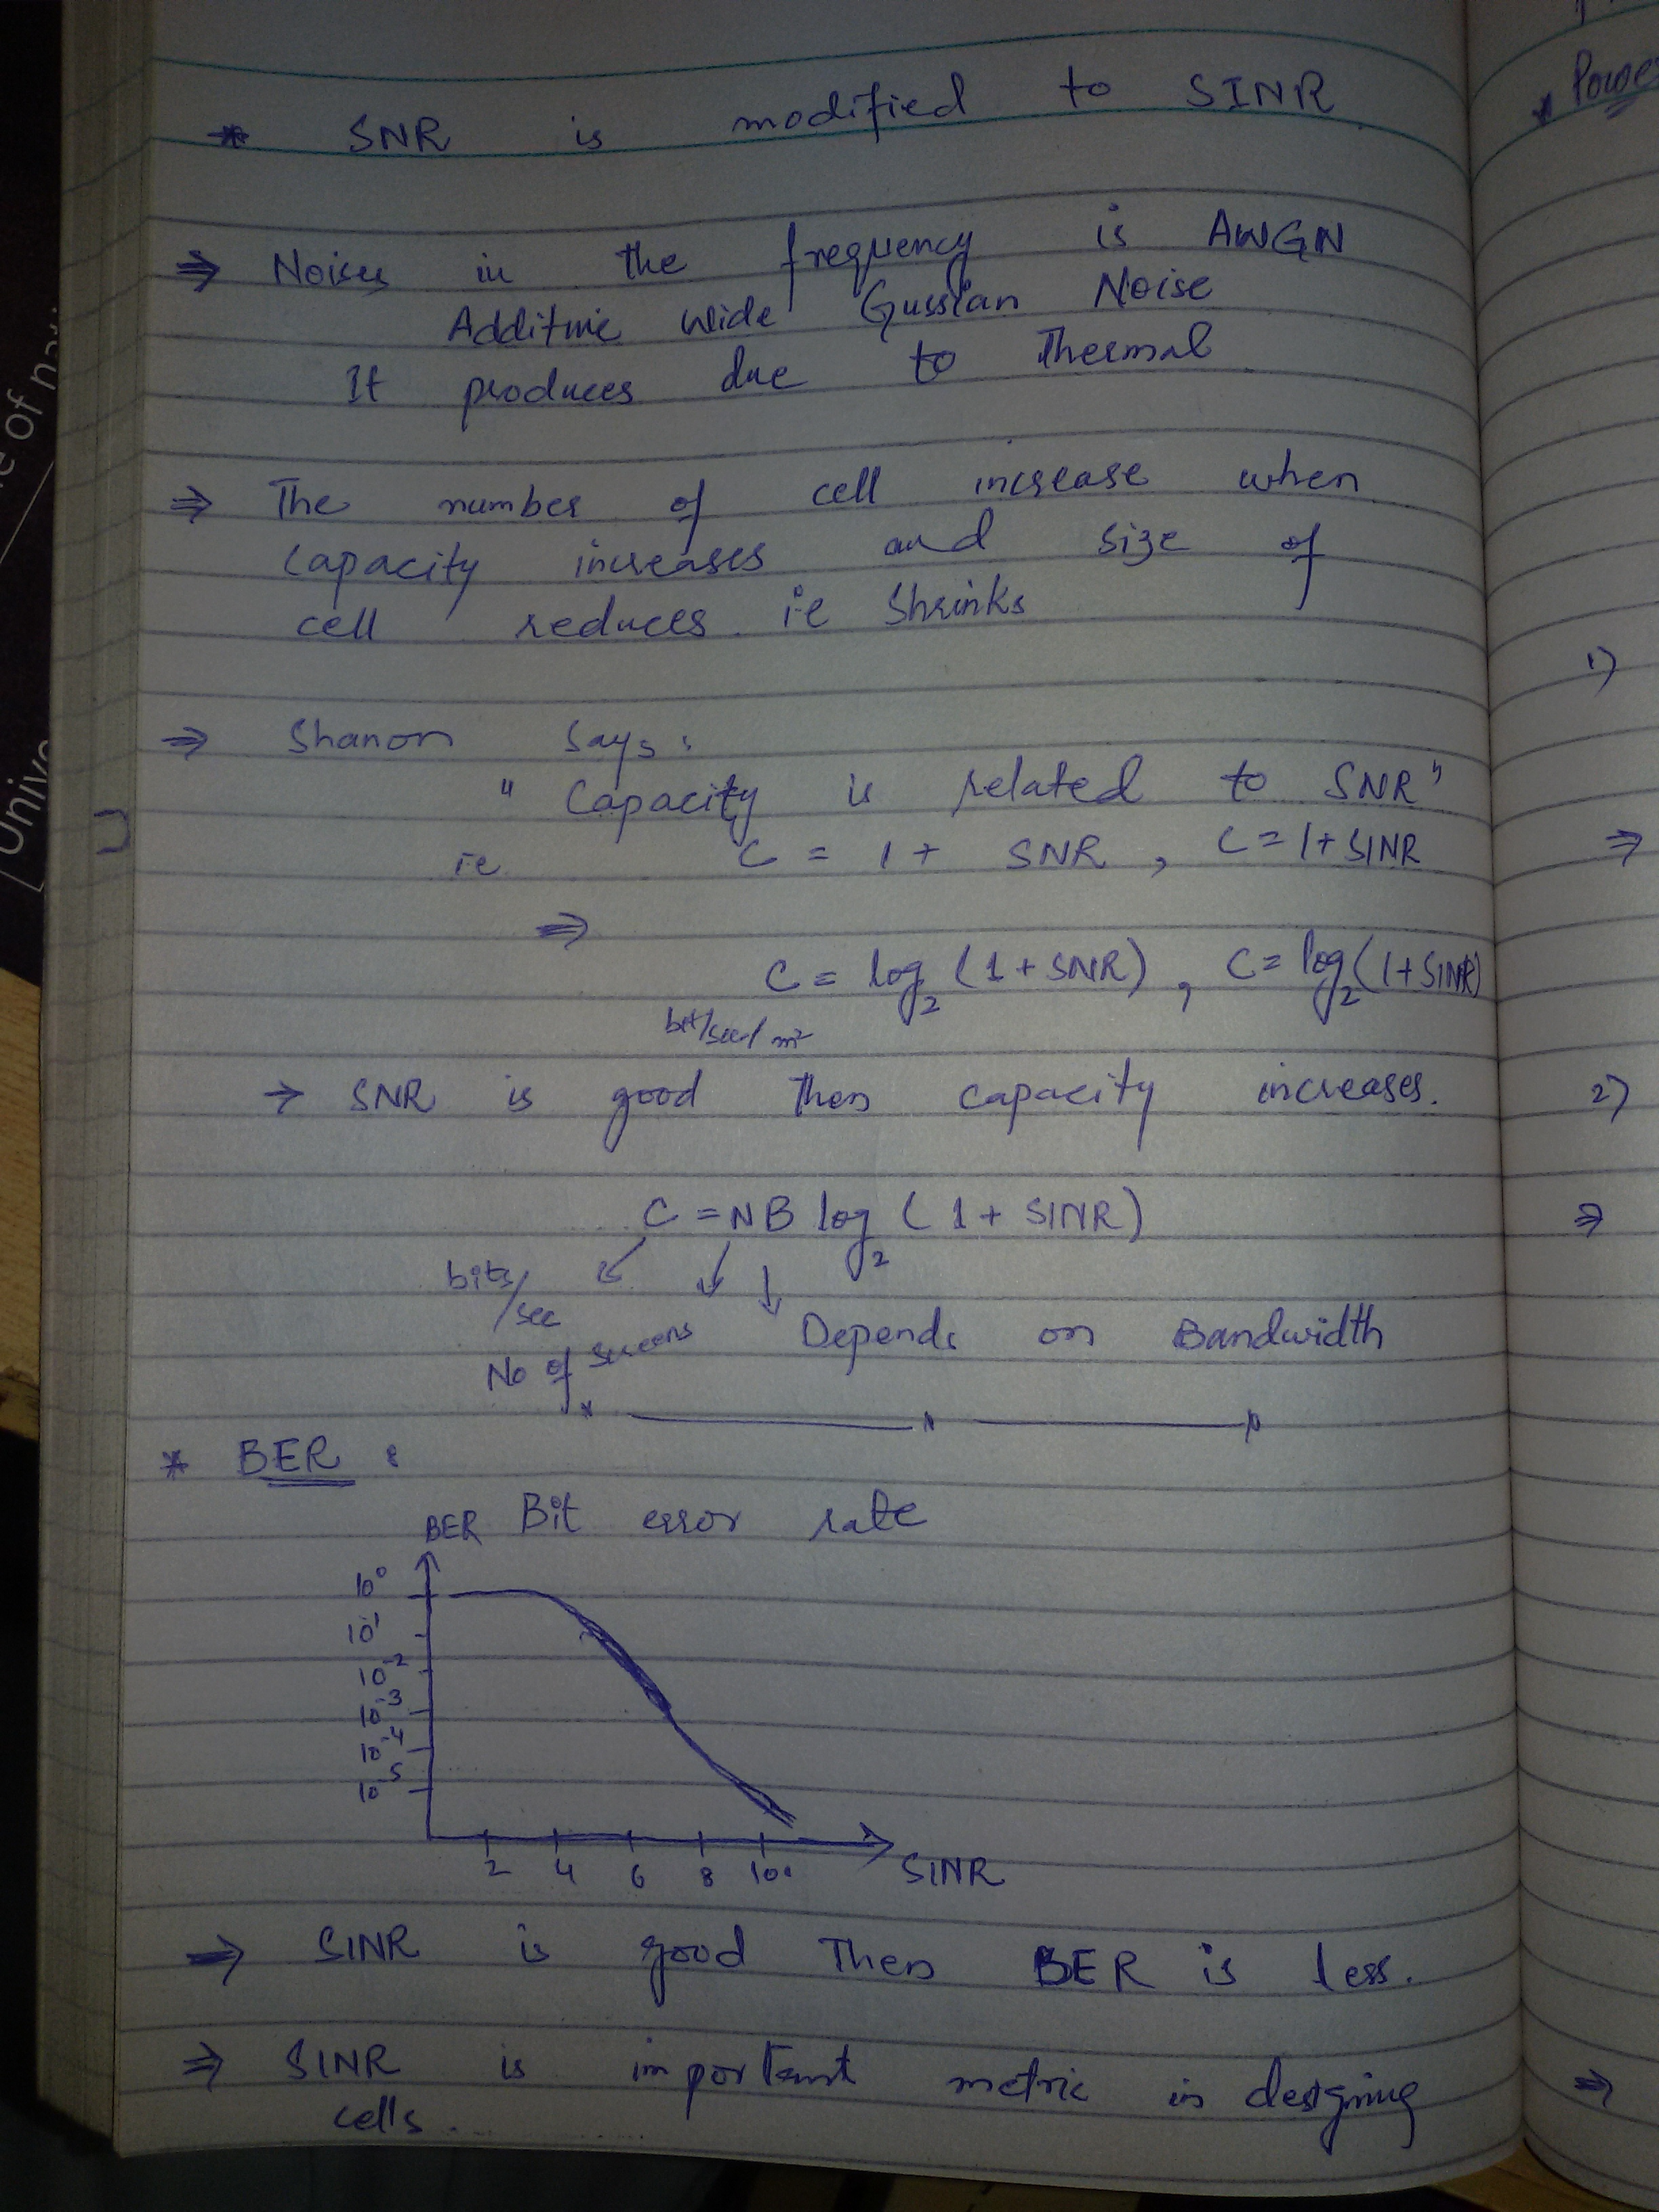 * SNR is modified to SINR
* Power
⇒ Noises in the frequency is AWGN
Additive Wide Gussian Noise
It produces due to Thermal
⇒ The number of cell increase when
capacity increases and size of
cell reduces i.e Shrinks
1)
⇒ Shanon Says:
" Capacity is related to SNR"
i.e C = 1 + SNR , C = 1 + SINR
⇒
⇒
C = log₂ (1 + SNR) , C = log₂ (1 + SINR)
bit/sec/m²
→ SNR is good then capacity increases.
2)
C = NB log₂ (1 + SINR)
⇒
bits/sec
No of
Depends on Bandwidth
* BER :
BER Bit error rate
10⁰
10⁻¹
10⁻²
10⁻³
10⁻⁴
10⁻⁵
2 4 6 8 10
SINR
⇒ SINR is good then BER is less.
⇒ SINR is important metric in designing
cells.
⇒
e of
Unive